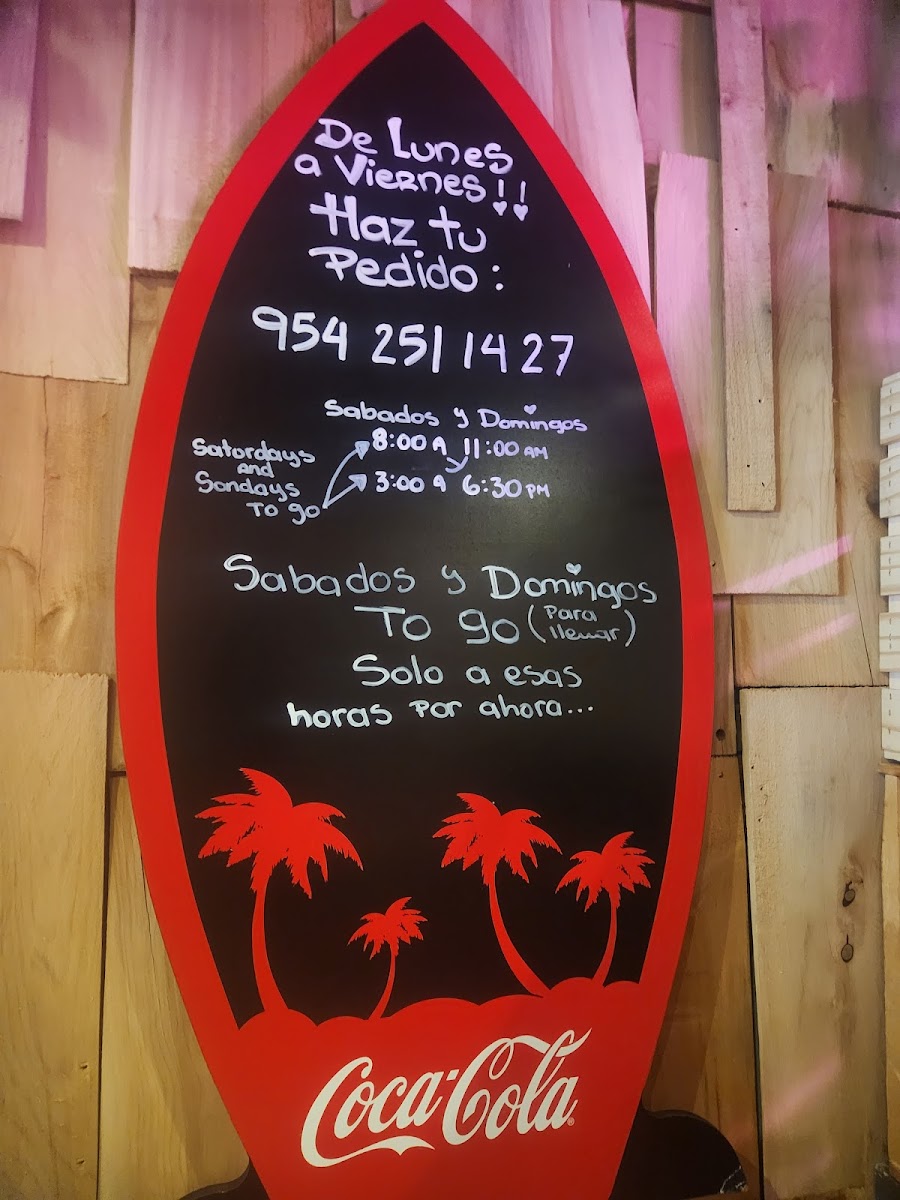 De Lunes
a Viernes!!
Haz tu
Pedido:
954 251 14 27
Sabados y Domingos
8:00 A 11:00 AM
y
3:00 A 6:30 PM
Satordays
and
Sondays
To go
Sabados y Domingos
To go (Para
llevar)
Solo a esas
horas por ahora...
Coca-Cola®